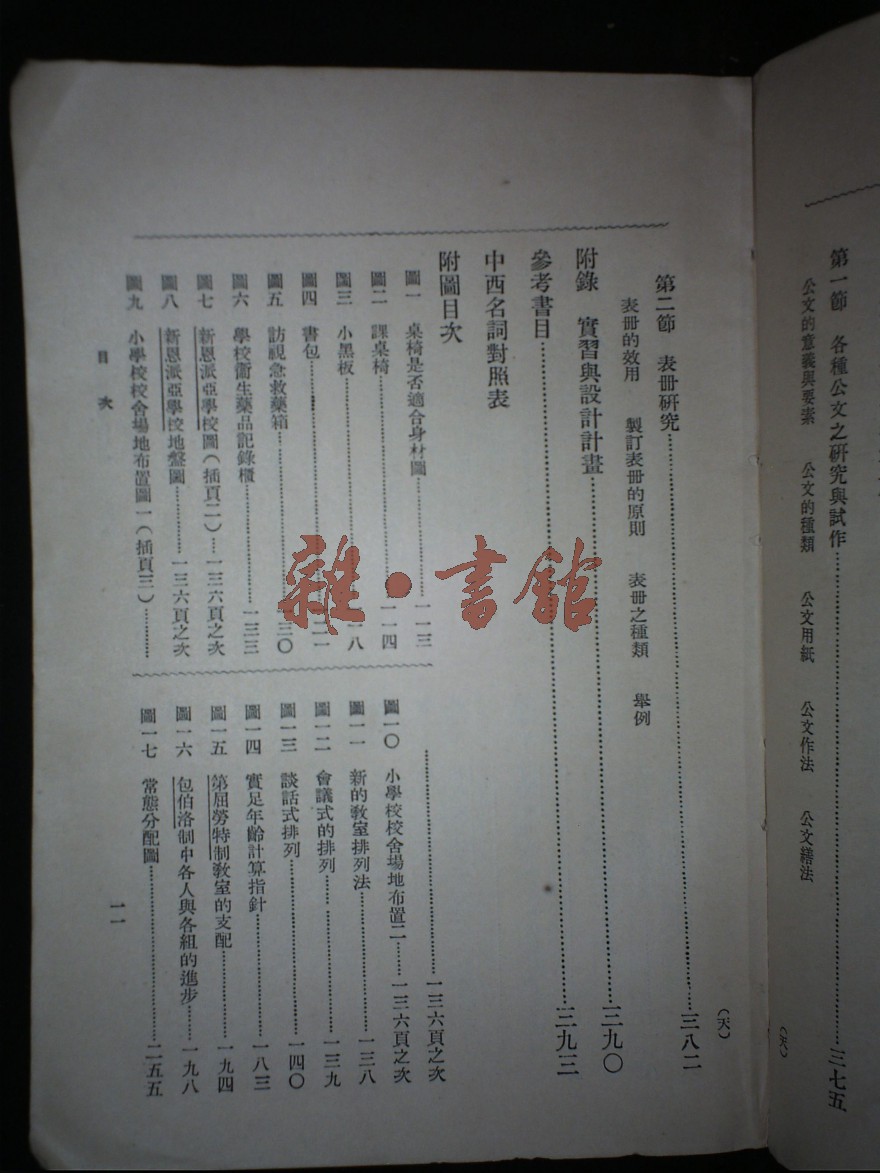 第一節　各種公文之研究與試作……三七五
公文的意義與要素　公文的種類　公文用紙　公文作法　公文繕法
第二節　表冊研究……三八二
表冊的效用　製訂表冊的原則　表冊之種類　舉例
附錄　實習與設計計畫……三九〇
參考書目……三九三
中西名詞對照表
附圖目次
圖一　桌椅是否適合身材圖……一一三
圖二　課桌椅……一一四
圖三　小黑板……一八
圖四　書包……二一
圖五　訪視急救藥箱……一三〇
圖六　學校衞生藥品記錄櫃……一三三
圖七　新恩派亞學校圖（插頁二）…一三六頁之次
圖八　新恩派亞學校地盤圖……一三六頁之次
圖九　小學校校舍場地布置圖一（插頁三）……
……一三六頁之次
圖一〇　小學校校舍場地布置二……一三六頁之次
圖一一　新的教室排列法……一三八
圖一二　會議式的排列……一三九
圖一三　談話式排列……一四〇
圖一四　實足年齡計算指針……一八三
圖一五　第屈勞特制教室的支配……一九四
圖一六　包伯洛制中各人與各組的進步……一九八
圖一七　常態分配圖……二五五
目次
一一
雜·書館